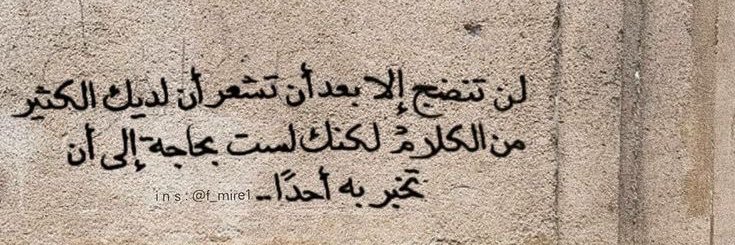 لن تنضج إلا بعد أن تشعر أن لديك الكثير
من الكلام لكنك لست بحاجه إلى أن
تخبر به أحدًا..
ins: @f_mire1